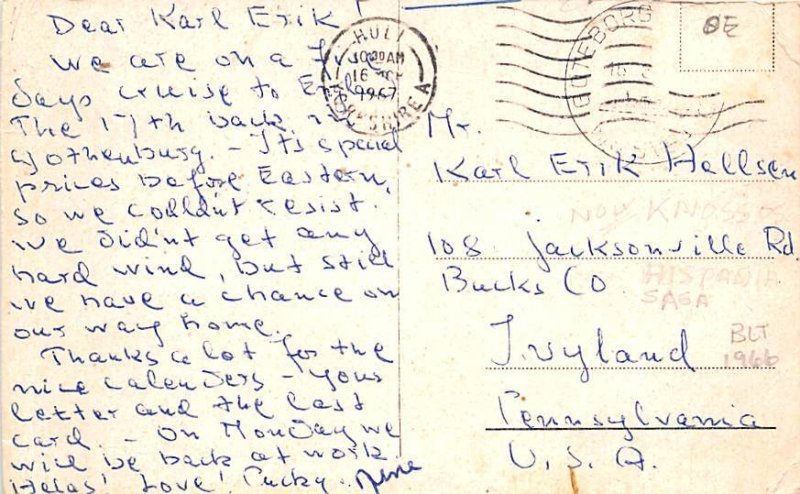 Dear Karl Erik!
We are on a
days cruise to
The 17th back in
Gothenburg. - Its spend
prices before Eastern,
so we couldn't resist.
We did'nt get any
hard wind, but still
we have a chance on
our way home.
Thanks a lot for the
nice calenders - your
letter and the last
card. - On Monday we
will be back at work.
Helas! Love! Pucky.
HULL
10:30 AM
16
1967
YORKSHIRE A
GÖTEBORG
16
ŒE
Mr.
Karl Erik Hellsen
108 Jacksonville Rd.
Bucks Co.
Ivyland
Pennsylvania
U.S.A.
NOW KNOSSOS
HISPANIA
SAGA
BLT
1966